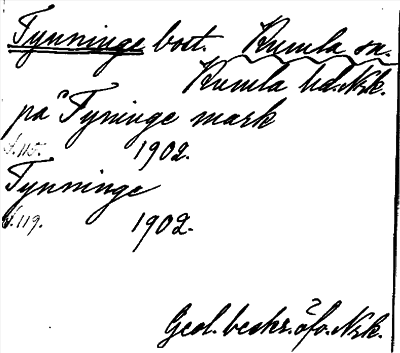 Tynninge bost. Kumla sn.
Kumla hd. Nrk.
på Tyninge mark
s. 115. 1902.
Tynninge
s. 119. 1902.
Geol. beskr. öfv. Nrk.